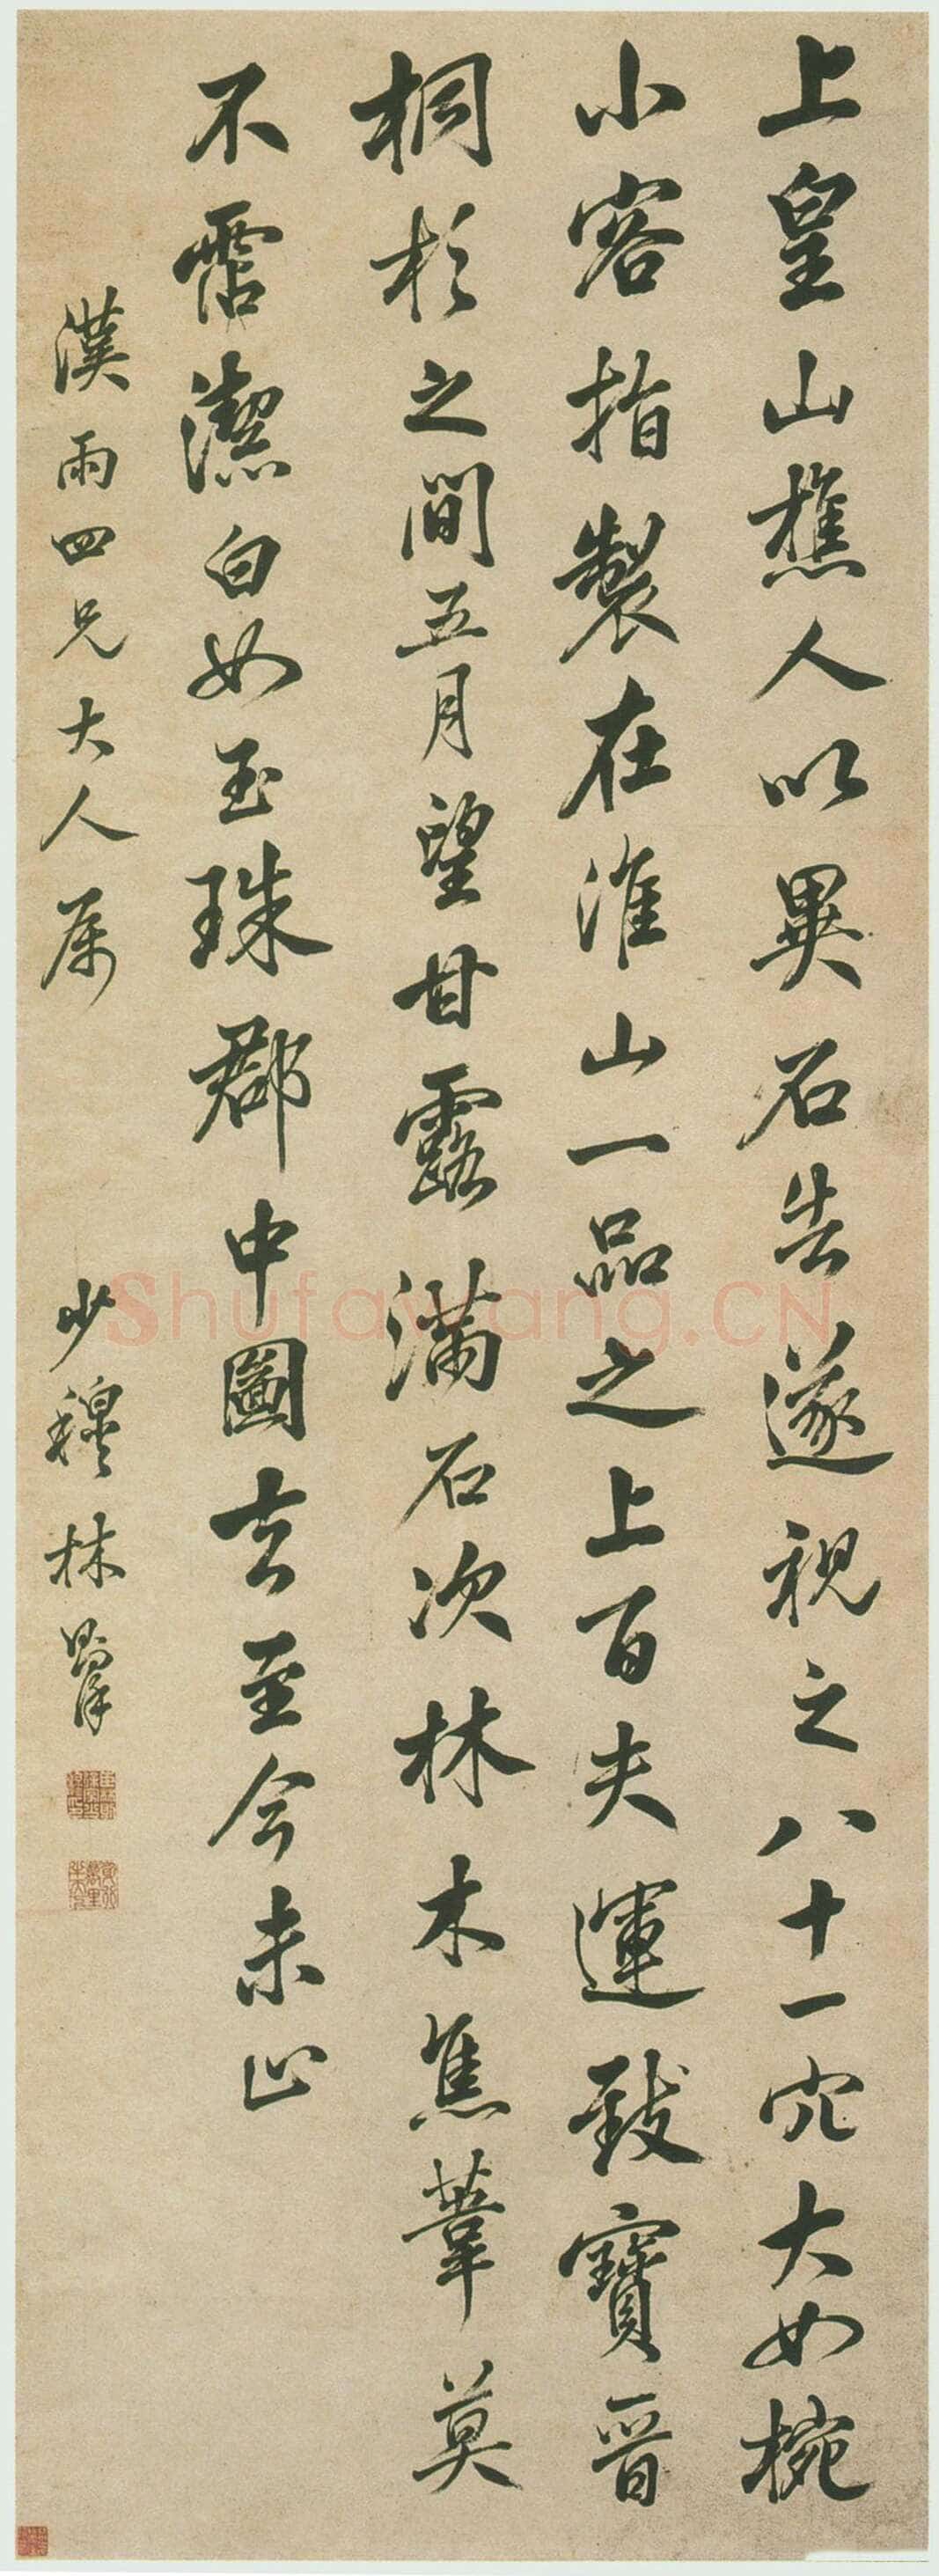 上皇山樵人以異石告遂視之八十一穴大如椀
小容指製在淮山一品之上百夫運致寶晉
桐杉之間五月望甘露滿石次林木焦葦莫
不霑潔白如玉珠郡中圖去至今未止
漢雨四兄大人屬
少穆林則徐
Shufawang.CN